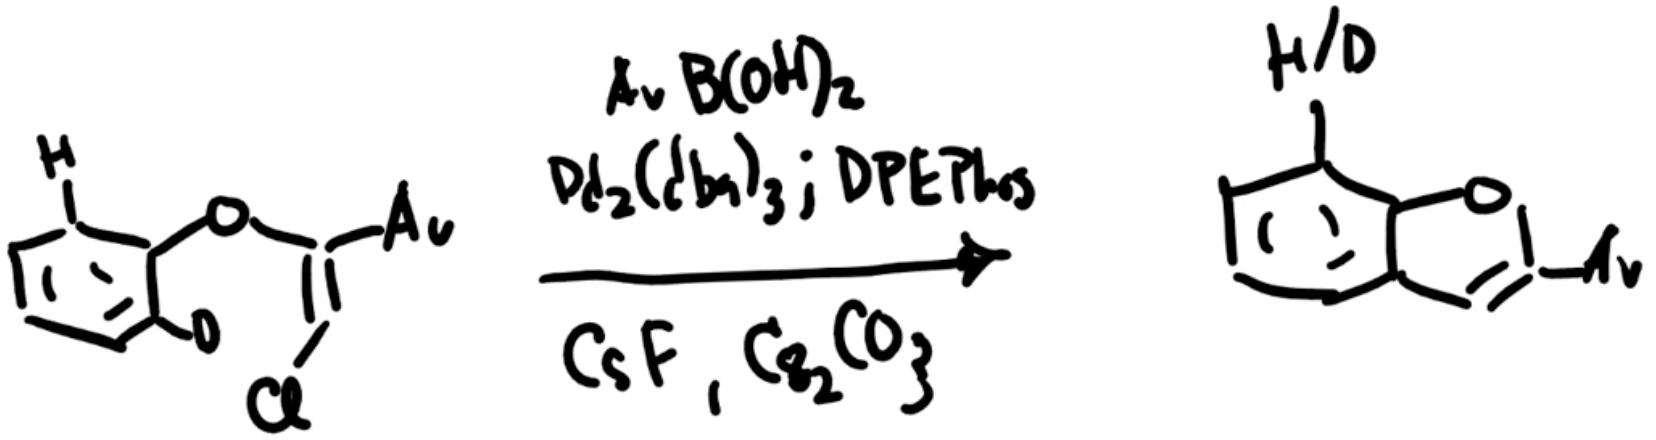 H
O
Ar
D
Cl
Ar B(OH)2
Pd2(dba)3; DPEPhos
CsF, Cs2CO3
H/D
O
Ar